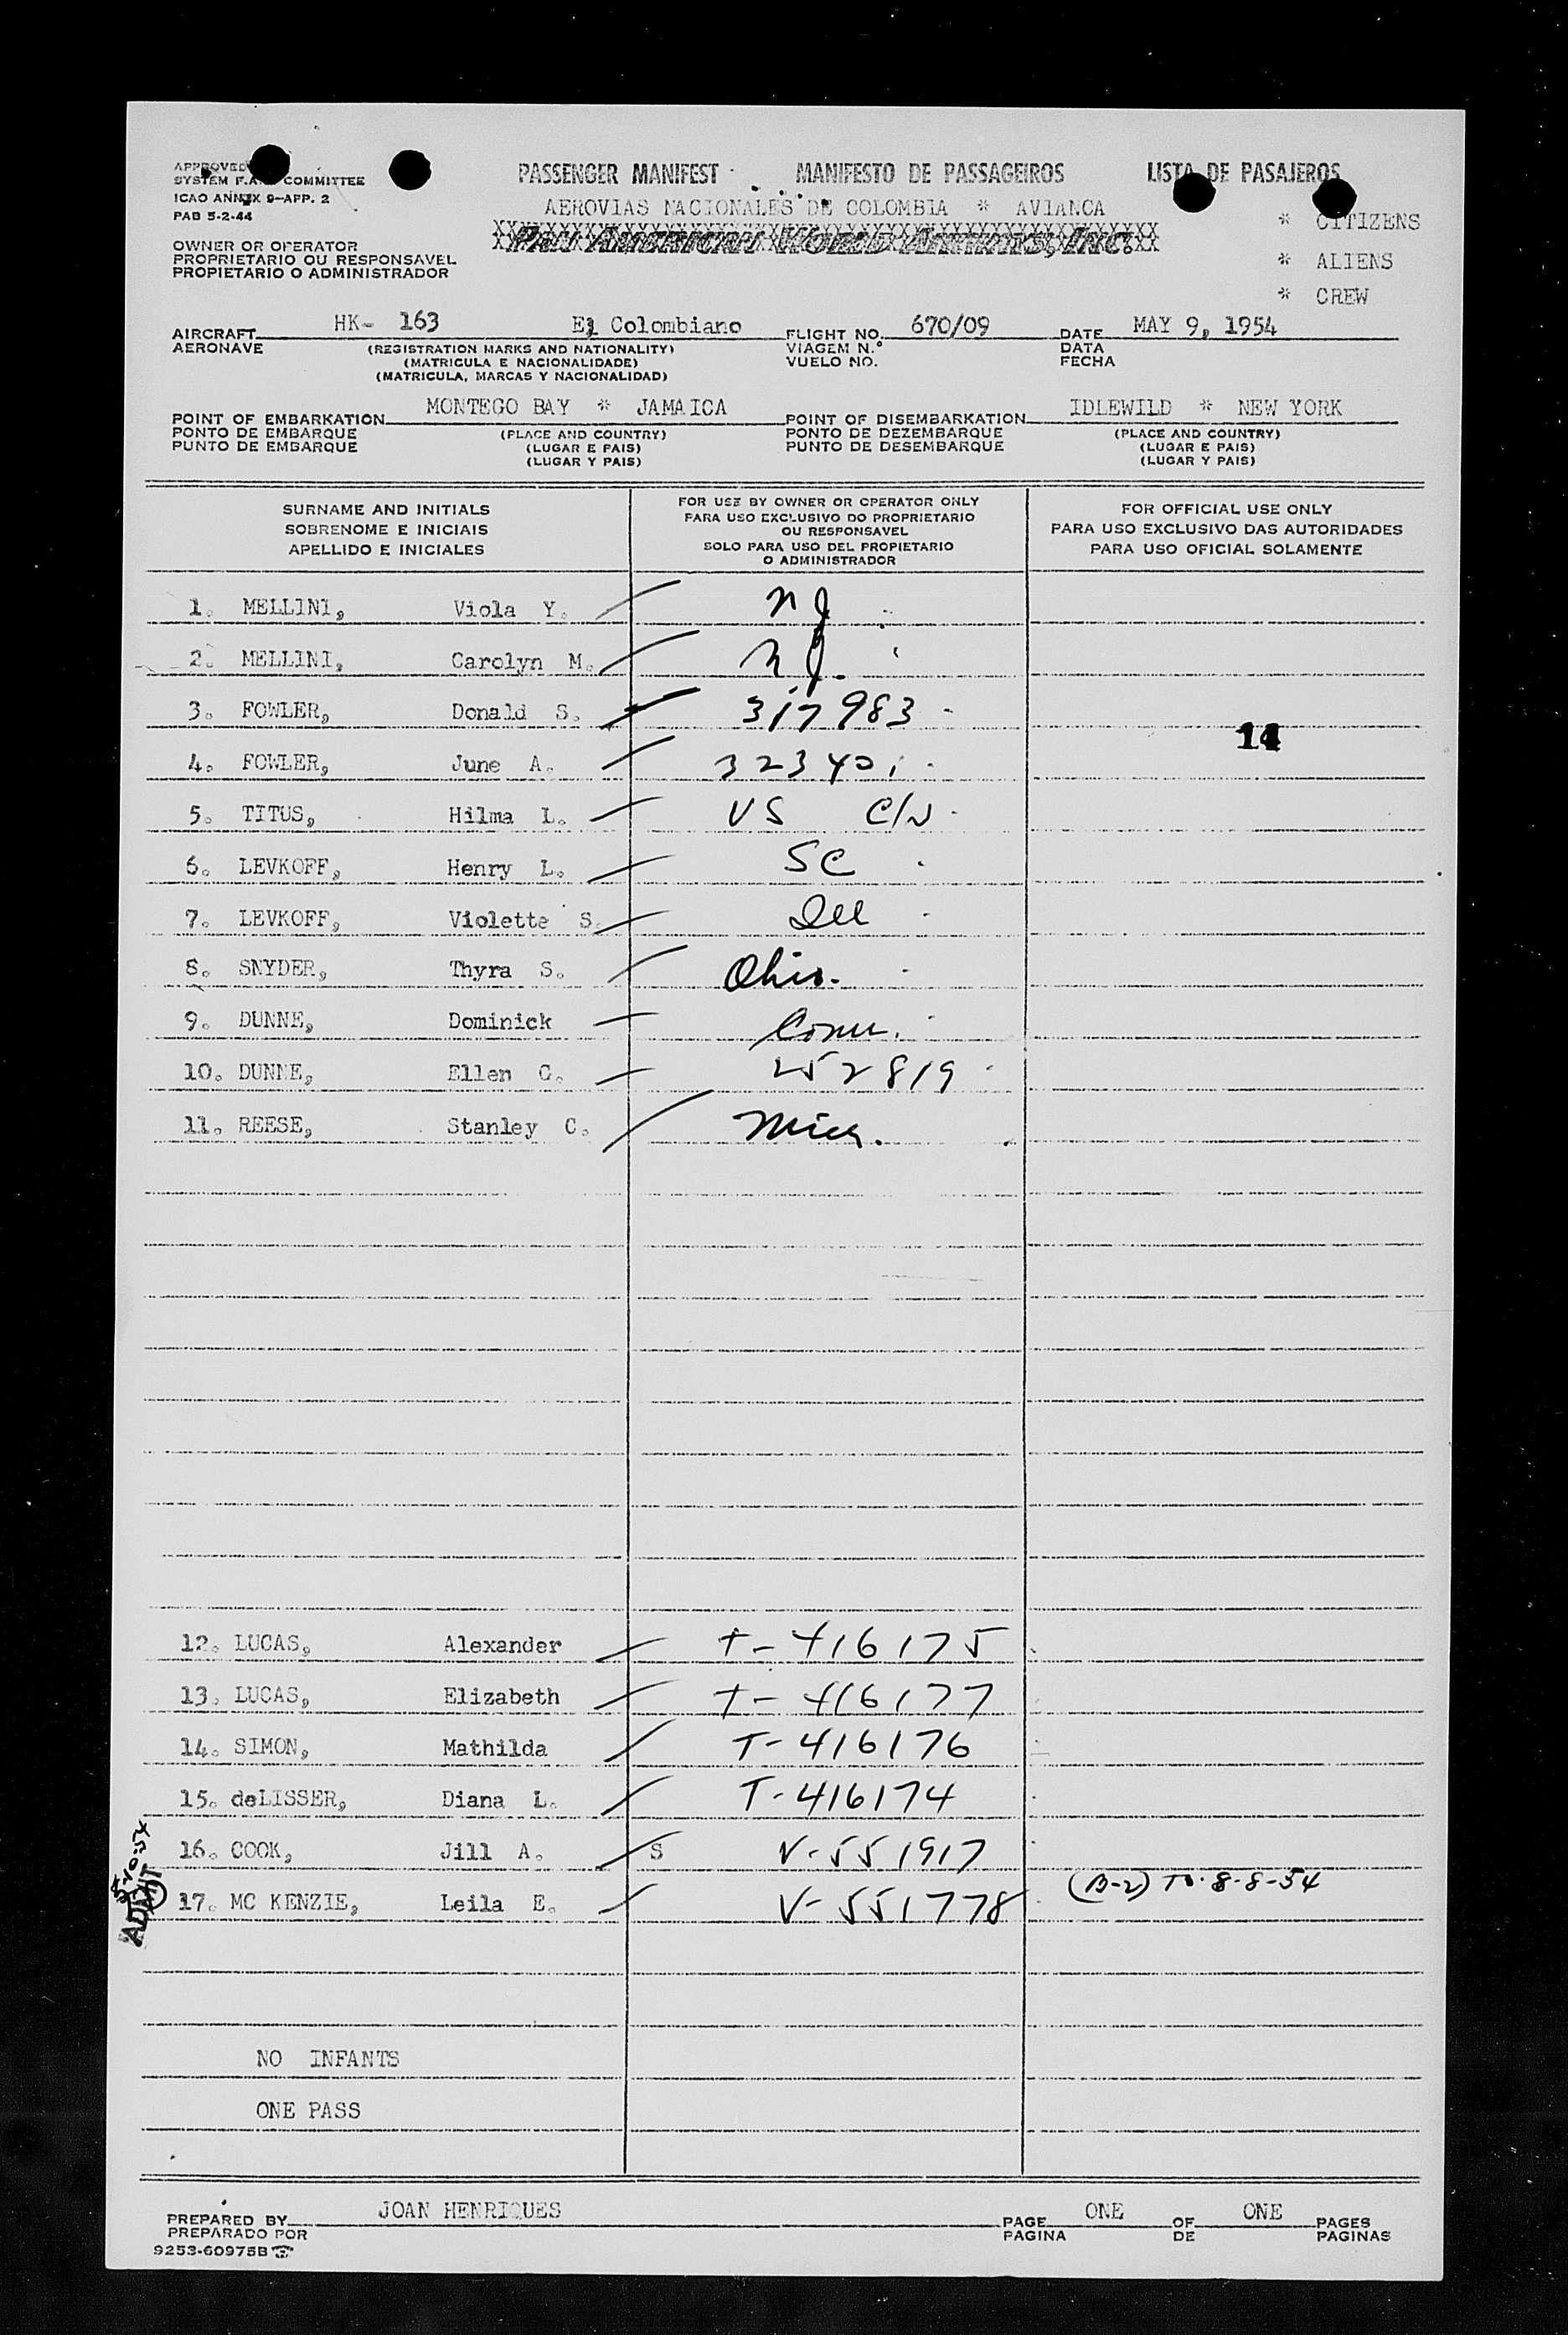 APPROVED
SYSTEM F.A. COMMITTEE
ICAO ANNEX 9-APP. 2
PAB 5-2-44
PASSENGER MANIFEST MANIFESTO DE PASSAGEIROS LISTA DE PASAJEROS
AEROVIAS NACIONALES DE COLOMBIA * AVIANCA
PAN AMERICAN WORLD AIRWAYS, INC.
* CITIZENS
* ALIENS
* CREW
OWNER OR OPERATOR
PROPRIETARIO OU RESPONSAVEL
PROPIETARIO O ADMINISTRADOR
AIRCRAFT HK- 163 El Colombiano FLIGHT NO. 670/09 DATE MAY 9, 1954
AERONAVE (REGISTRATION MARKS AND NATIONALITY) VIAGEM N.º DATA
(MATRICULA E NACIONALIDADE) VUELO NO. FECHA
(MATRICULA, MARCAS Y NACIONALIDAD)
POINT OF EMBARKATION MONTEGO BAY * JAMAICA POINT OF DISEMBARKATION IDLEWILD * NEW YORK
PONTO DE EMBARQUE (PLACE AND COUNTRY) PONTO DE DEZEMBARQUE (PLACE AND COUNTRY)
PUNTO DE EMBARQUE (LUGAR E PAIS) PUNTO DE DESEMBARQUE (LUGAR E PAIS)
(LUGAR Y PAIS) (LUGAR Y PAIS)
SURNAME AND INITIALS
SOBRENOME E INICIAIS
APELLIDO E INICIALES
FOR USE BY OWNER OR OPERATOR ONLY
PARA USO EXCLUSIVO DO PROPRIETARIO
OU RESPONSAVEL
SOLO PARA USO DEL PROPIETARIO
O ADMINISTRADOR
FOR OFFICIAL USE ONLY
PARA USO EXCLUSIVO DAS AUTORIDADES
PARA USO OFICIAL SOLAMENTE
1. MELLINI, Viola Y. NJ
2. MELLINI, Carolyn M. NJ.
3. FOWLER, Donald S. 317983
14
4. FOWLER, June A. 323401
5. TITUS, Hilma L. US C/N
6. LEVKOFF, Henry L. SC
7. LEVKOFF, Violette S. Ill
8. SNYDER, Thyra S. Ohio.
9. DUNNE, Dominick Conn.
10. DUNNE, Ellen G. 252819
11. REESE, Stanley C.
12. LUCAS, Alexander T-416175
13. LUCAS, Elizabeth T-416177
14. SIMON, Mathilda T-416176
15. deLISSER, Diana L. T-416174
16. COOK, Jill A. S V-551917
5-10-54
ADMIT
17. MC KENZIE, Leila E. V-551778 (B-2) To. 8-8-54
NO INFANTS
ONE PASS
PREPARED BY JOAN HENRIQUES PAGE ONE OF ONE PAGES
PREPARADO POR PAGINA DE PAGINAS
9253-60975B